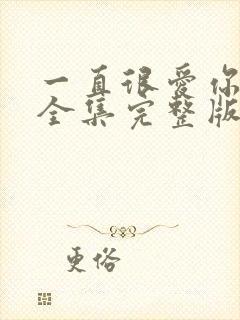 一直很爱你
全集完整版
更俗